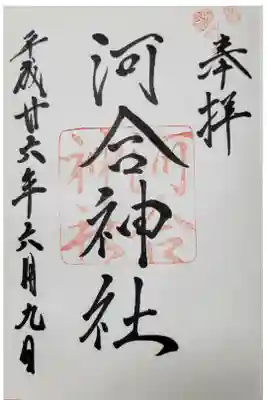 奉拝
河合神社
平成廿六年六月九日
河合
神社